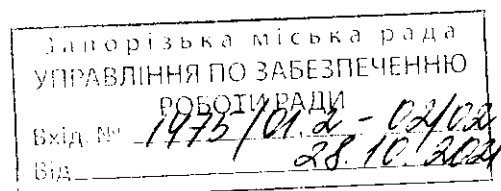 Запорізька міська рада
УПРАВЛІННЯ ПО ЗАБЕЗПЕЧЕННЮ
РОБОТИ РАДИ
Вхід. № 1975/01.2-02/02
Від 28.10.202